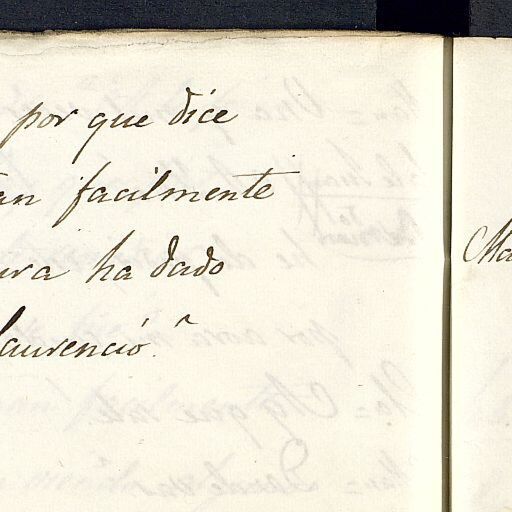 por que dice
an facilmente
ura ha dado
Laurenció.
Ma